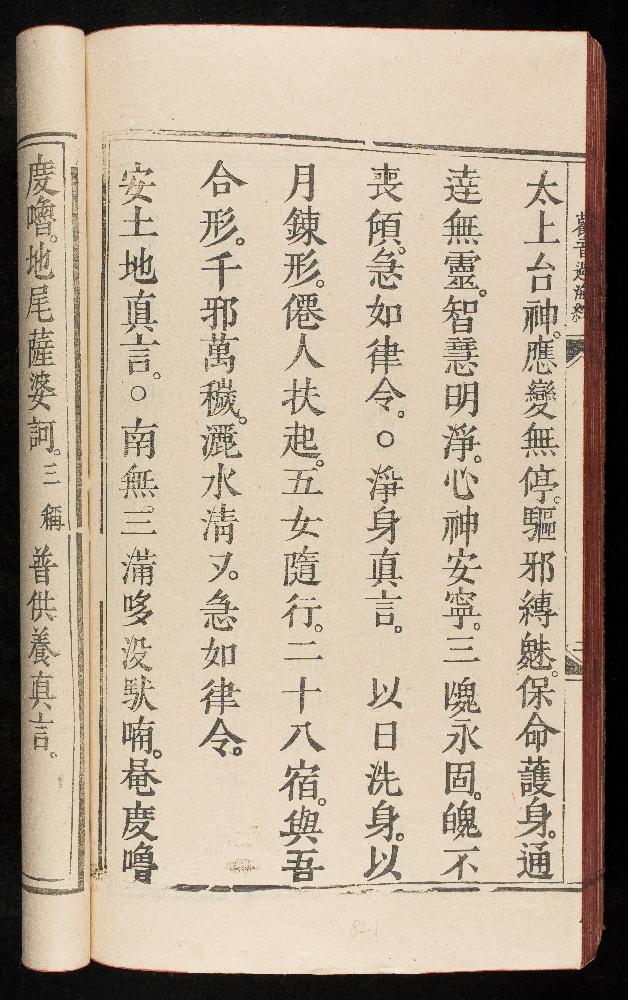 太上台神。應變無停。驅邪縛魅。保命護身。通
達無靈。智慧明淨。心神安寧。三魄永固。魄不
喪傾。急如律令。○淨身真言。 以日洗身。以
月鍊形。僊人扶起。五女隨行。二十八宿。與吾
合形。千邪萬穢。灑水清又。急如律令。
安土地真言。○南無。三滿哆没馱喃。菴度嚕
度嚕。地尾薩婆訶。三稱 普供養真言。